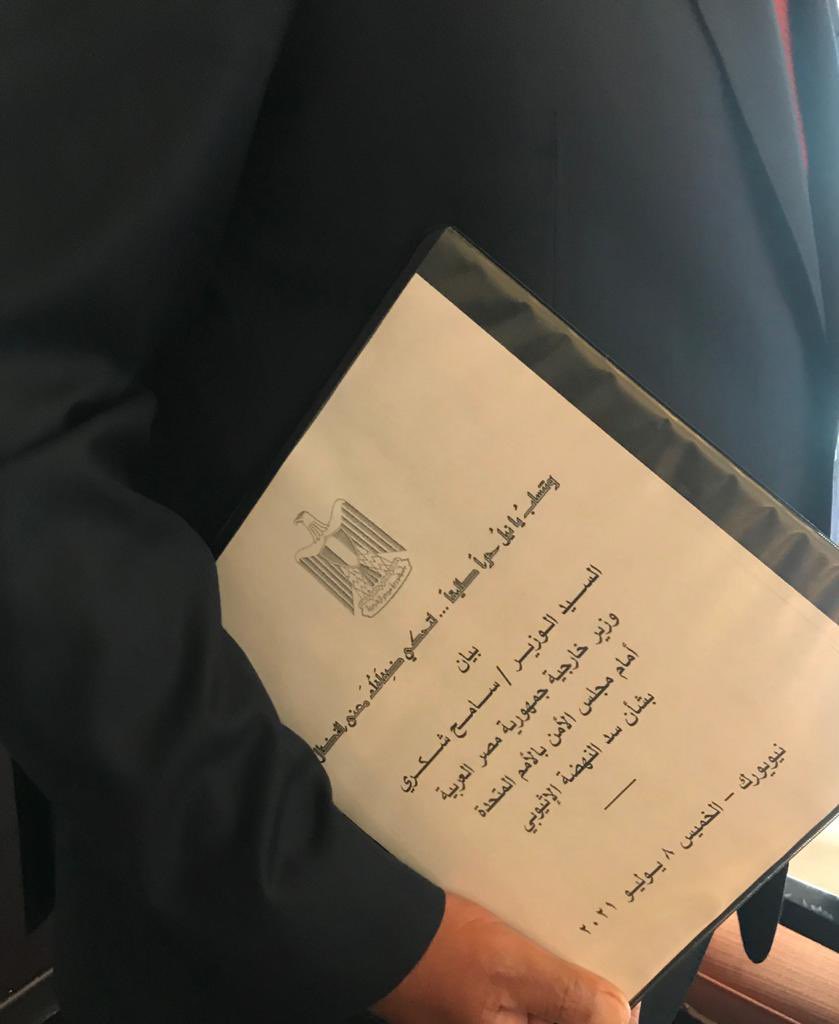 ومنساب يا نيل حراً طليقاً ... لتحكي ضفافك معنى النضال
بيان
السيد الوزير / سامح شكري
وزير خارجية جمهورية مصر العربية
أمام مجلس الأمن بالأمم المتحدة
بشأن سد النهضة الإثيوبي
نيويورك - الخميس ٨ يوليو ٢٠٢١